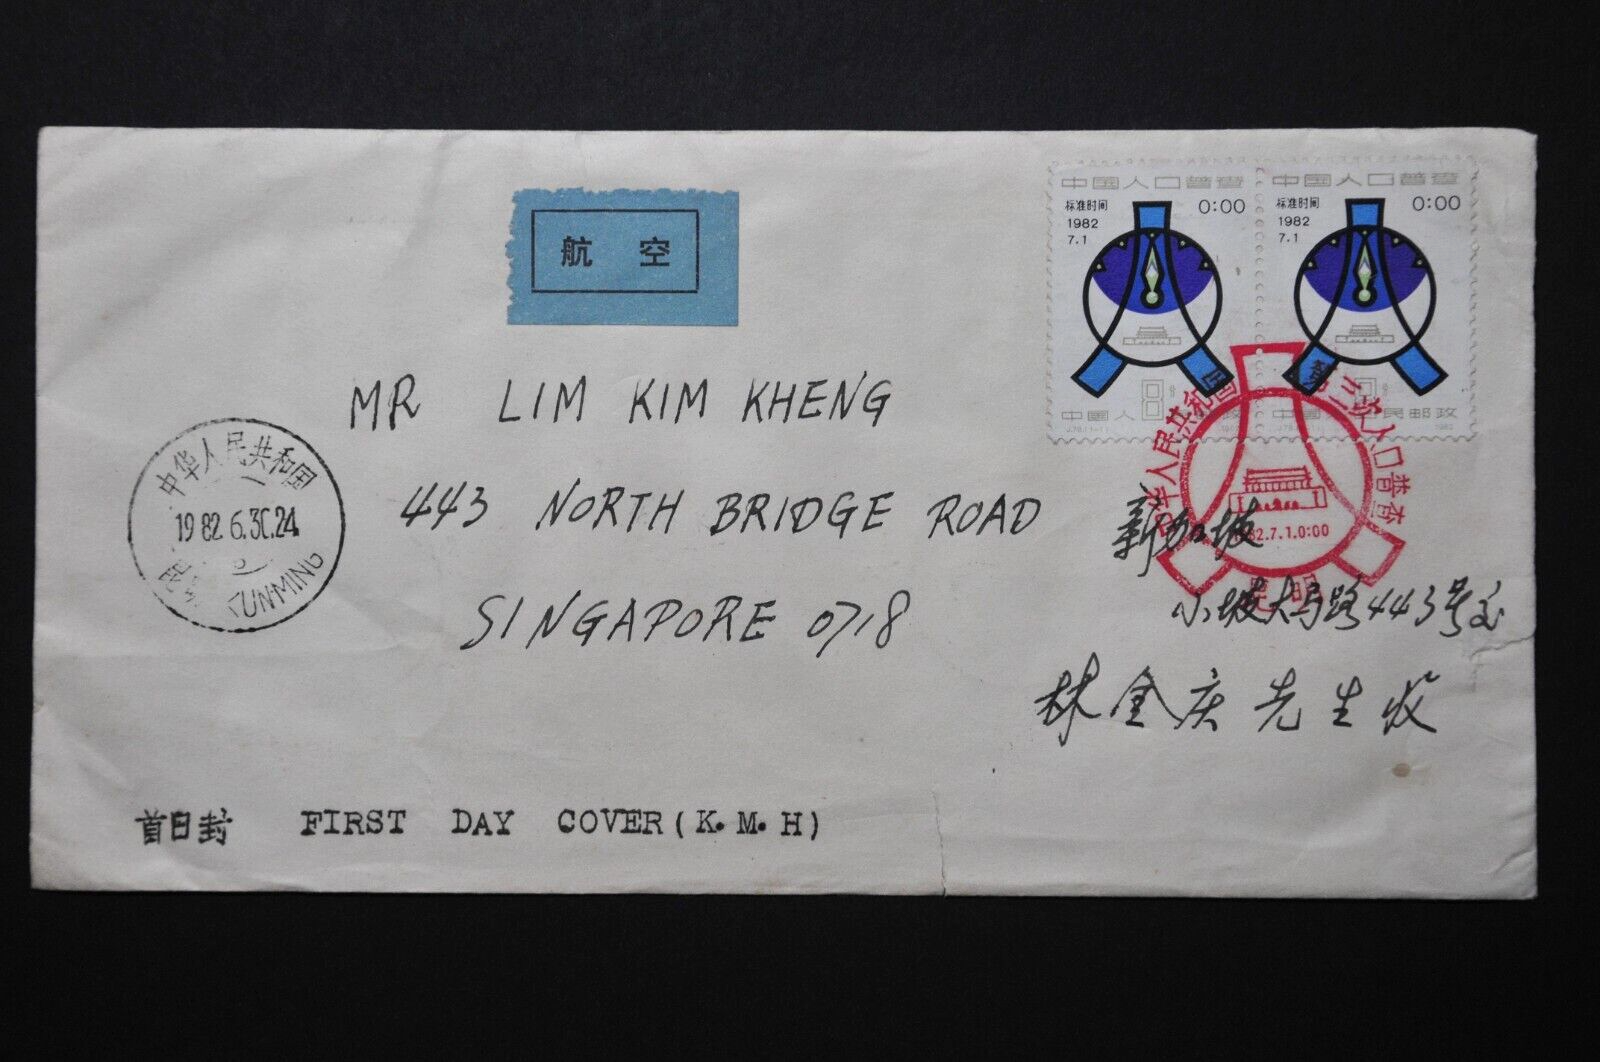 航 空
中国人口普查
标准时间
1982
7.1
0:00
8分
J.78.(1-1)
中国人口普查
标准时间
1982
7.1
0:00
中国人民邮政
1982
中华人民共和国第三次人口普查
1982.7.1.0:00
昆明
中华人民共和国
1982.6.30.24
KUNMING
MR LIM KIM KHENG
443 NORTH BRIDGE ROAD
SINGAPORE 0718
新加坡
小坡大马路443号交
林金庆先生收
首日封 FIRST DAY COVER (K.M.H)